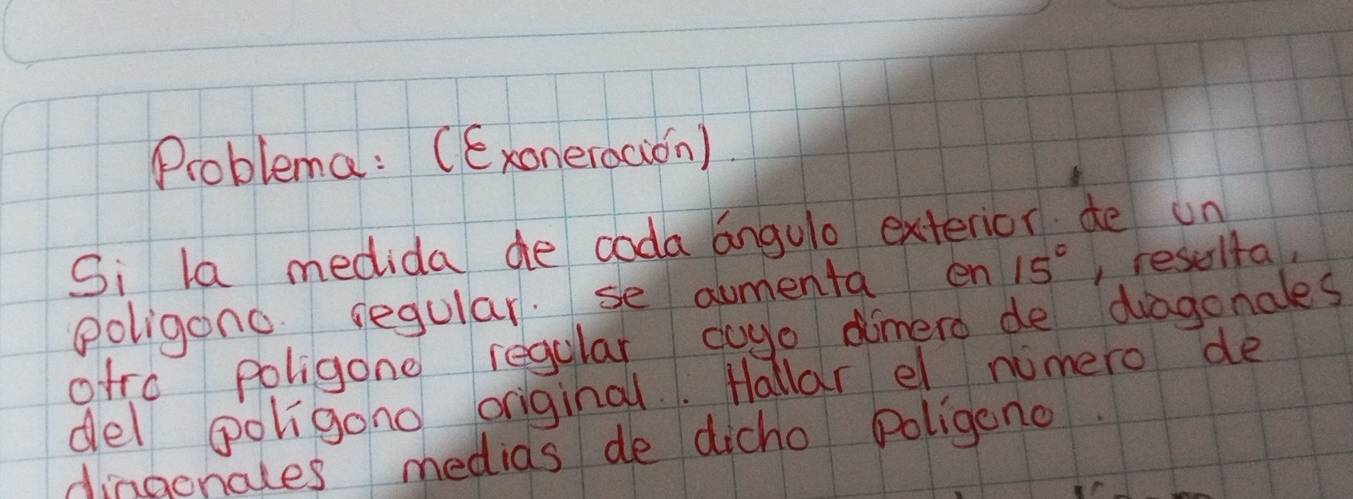 Problema: (Exoneración).
Si la medida de coda ángulo exterior de un
poligono. regular. se aumenta en 15°, resulta,
otro poligono regular cuyo dúmero de diagonales
del polígono original.. Hallar el número de
diagonales medias de dicho poligono.